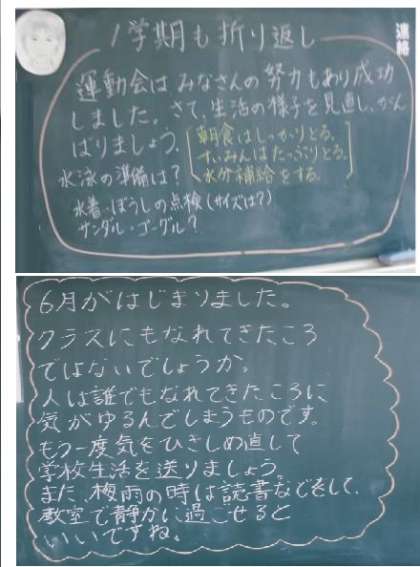 1学期も折り返し
連絡
運動会はみなさんの努力もあり成功
しました。さて、生活の様子を見直し、がん
ばりましょう。
朝食はしっかりとる。
すいみんはたっぷりとる。
水分補給をする。
水泳の準備は?
水着・ぼうしの点検(サイズは?)
サンダル・ゴーグル?
6月がはじまりました。
クラスにもなれてきたころ
ではないでしょうか。
人は誰でもなれてきたころに
気がゆるんでしまうものです。
もう一度気をひきしめ直して
学校生活を送りましょう。
また、梅雨の時は読書などをして、
教室で静かに過ごせると
いいですね。